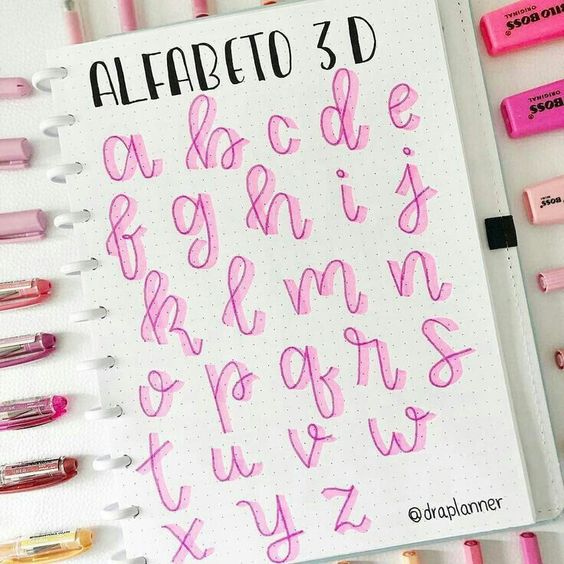 ALFABETO 3D
a b c d e
f g h i j
k l m n
o p q r s
t u v w
x y z
@draplanner
BOSS
ORIGINAL
BOSS
ORIGINAL
BOSS